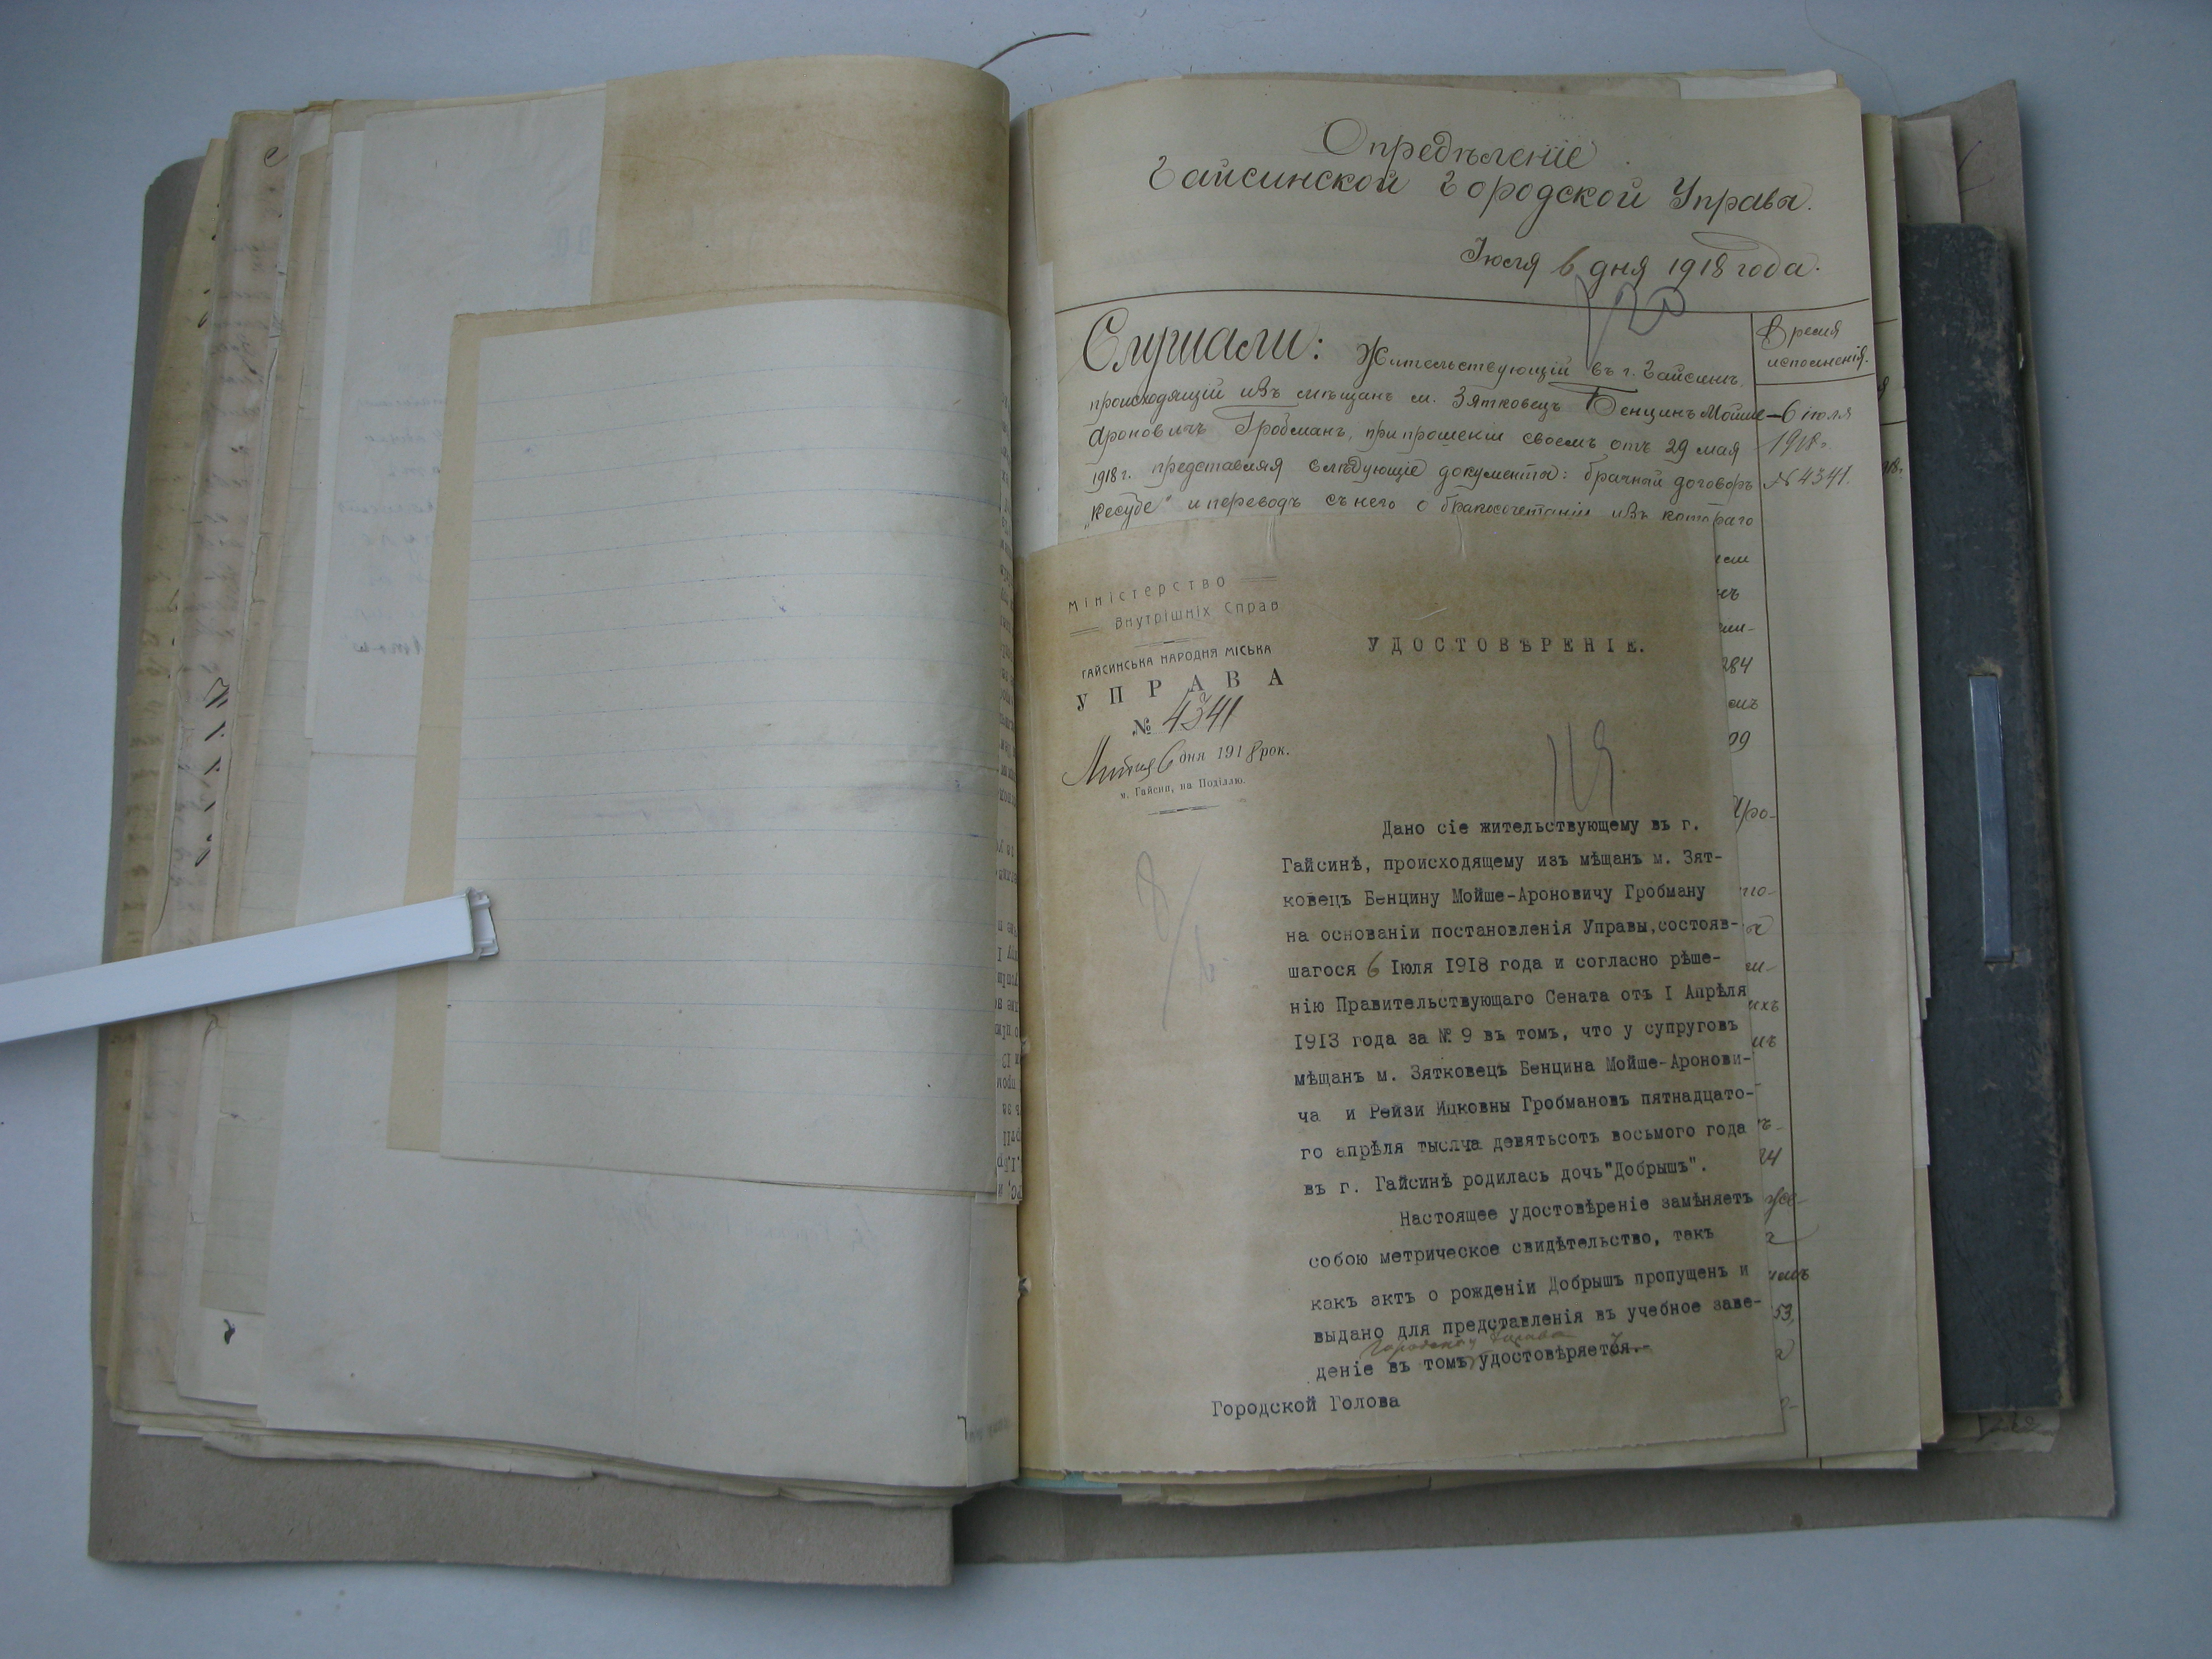 Опредѣленіе
Гайсинской Городской Управы.
Іюля 6 дня 1918 года.
120
Слушали: Жительствующій въ г. Гайсинѣ,
происходящій изъ мѣщанъ м. Зятковецъ Бенцинъ Мойше-
Ароновичъ Гробманъ, при прошеніи своемъ отъ 29 мая
1918 г. представляя слѣдующіе документы: брачный договоръ
„Кесубе" и переводъ съ него о бракосочетаніи изъ котораго
Время
исполненія.
6 іюля
1918 г.
№ 4341.
Міністерство
Внутрішніх Справ
ГАЙСИНСЬКА НАРОДНЯ МІСЬКА
УПРАВА
№ 4341
Липня 6 дня 1918 рок.
м. Гайсин, на Поділлю.
УДОСТОВѢРЕНІЕ.
119
Дано сіе жительствующему въ г.
Гайсинѣ, происходящему изъ мѣщанъ м. Зят-
ковецъ Бенцину Мойше-Ароновичу Гробману
на основаніи постановленія Управы,состояв-
шагося 6 Іюля 1918 года и согласно рѣше-
нію Правительствующаго Сената отъ I Апрѣля
1913 года за № 9 въ томъ, что у супруговъ
мѣщанъ м. Зятковецъ Бенцина Мойше-Аронови-
ча и Рейзи Ицковны Гробмановъ пятнадцато-
го апрѣля тысяча девятьсотъ восьмого года
въ г. Гайсинѣ родилась дочь"Добрышъ".
Настоящее удостовѣреніе замѣняетъ
собою метрическое свидѣтельство, такъ
какъ актъ о рожденіи Добрышъ пропущенъ и
выдано для представленія въ учебное заве-
деніе въ томъ удостовѣряется.-
Городской Голова